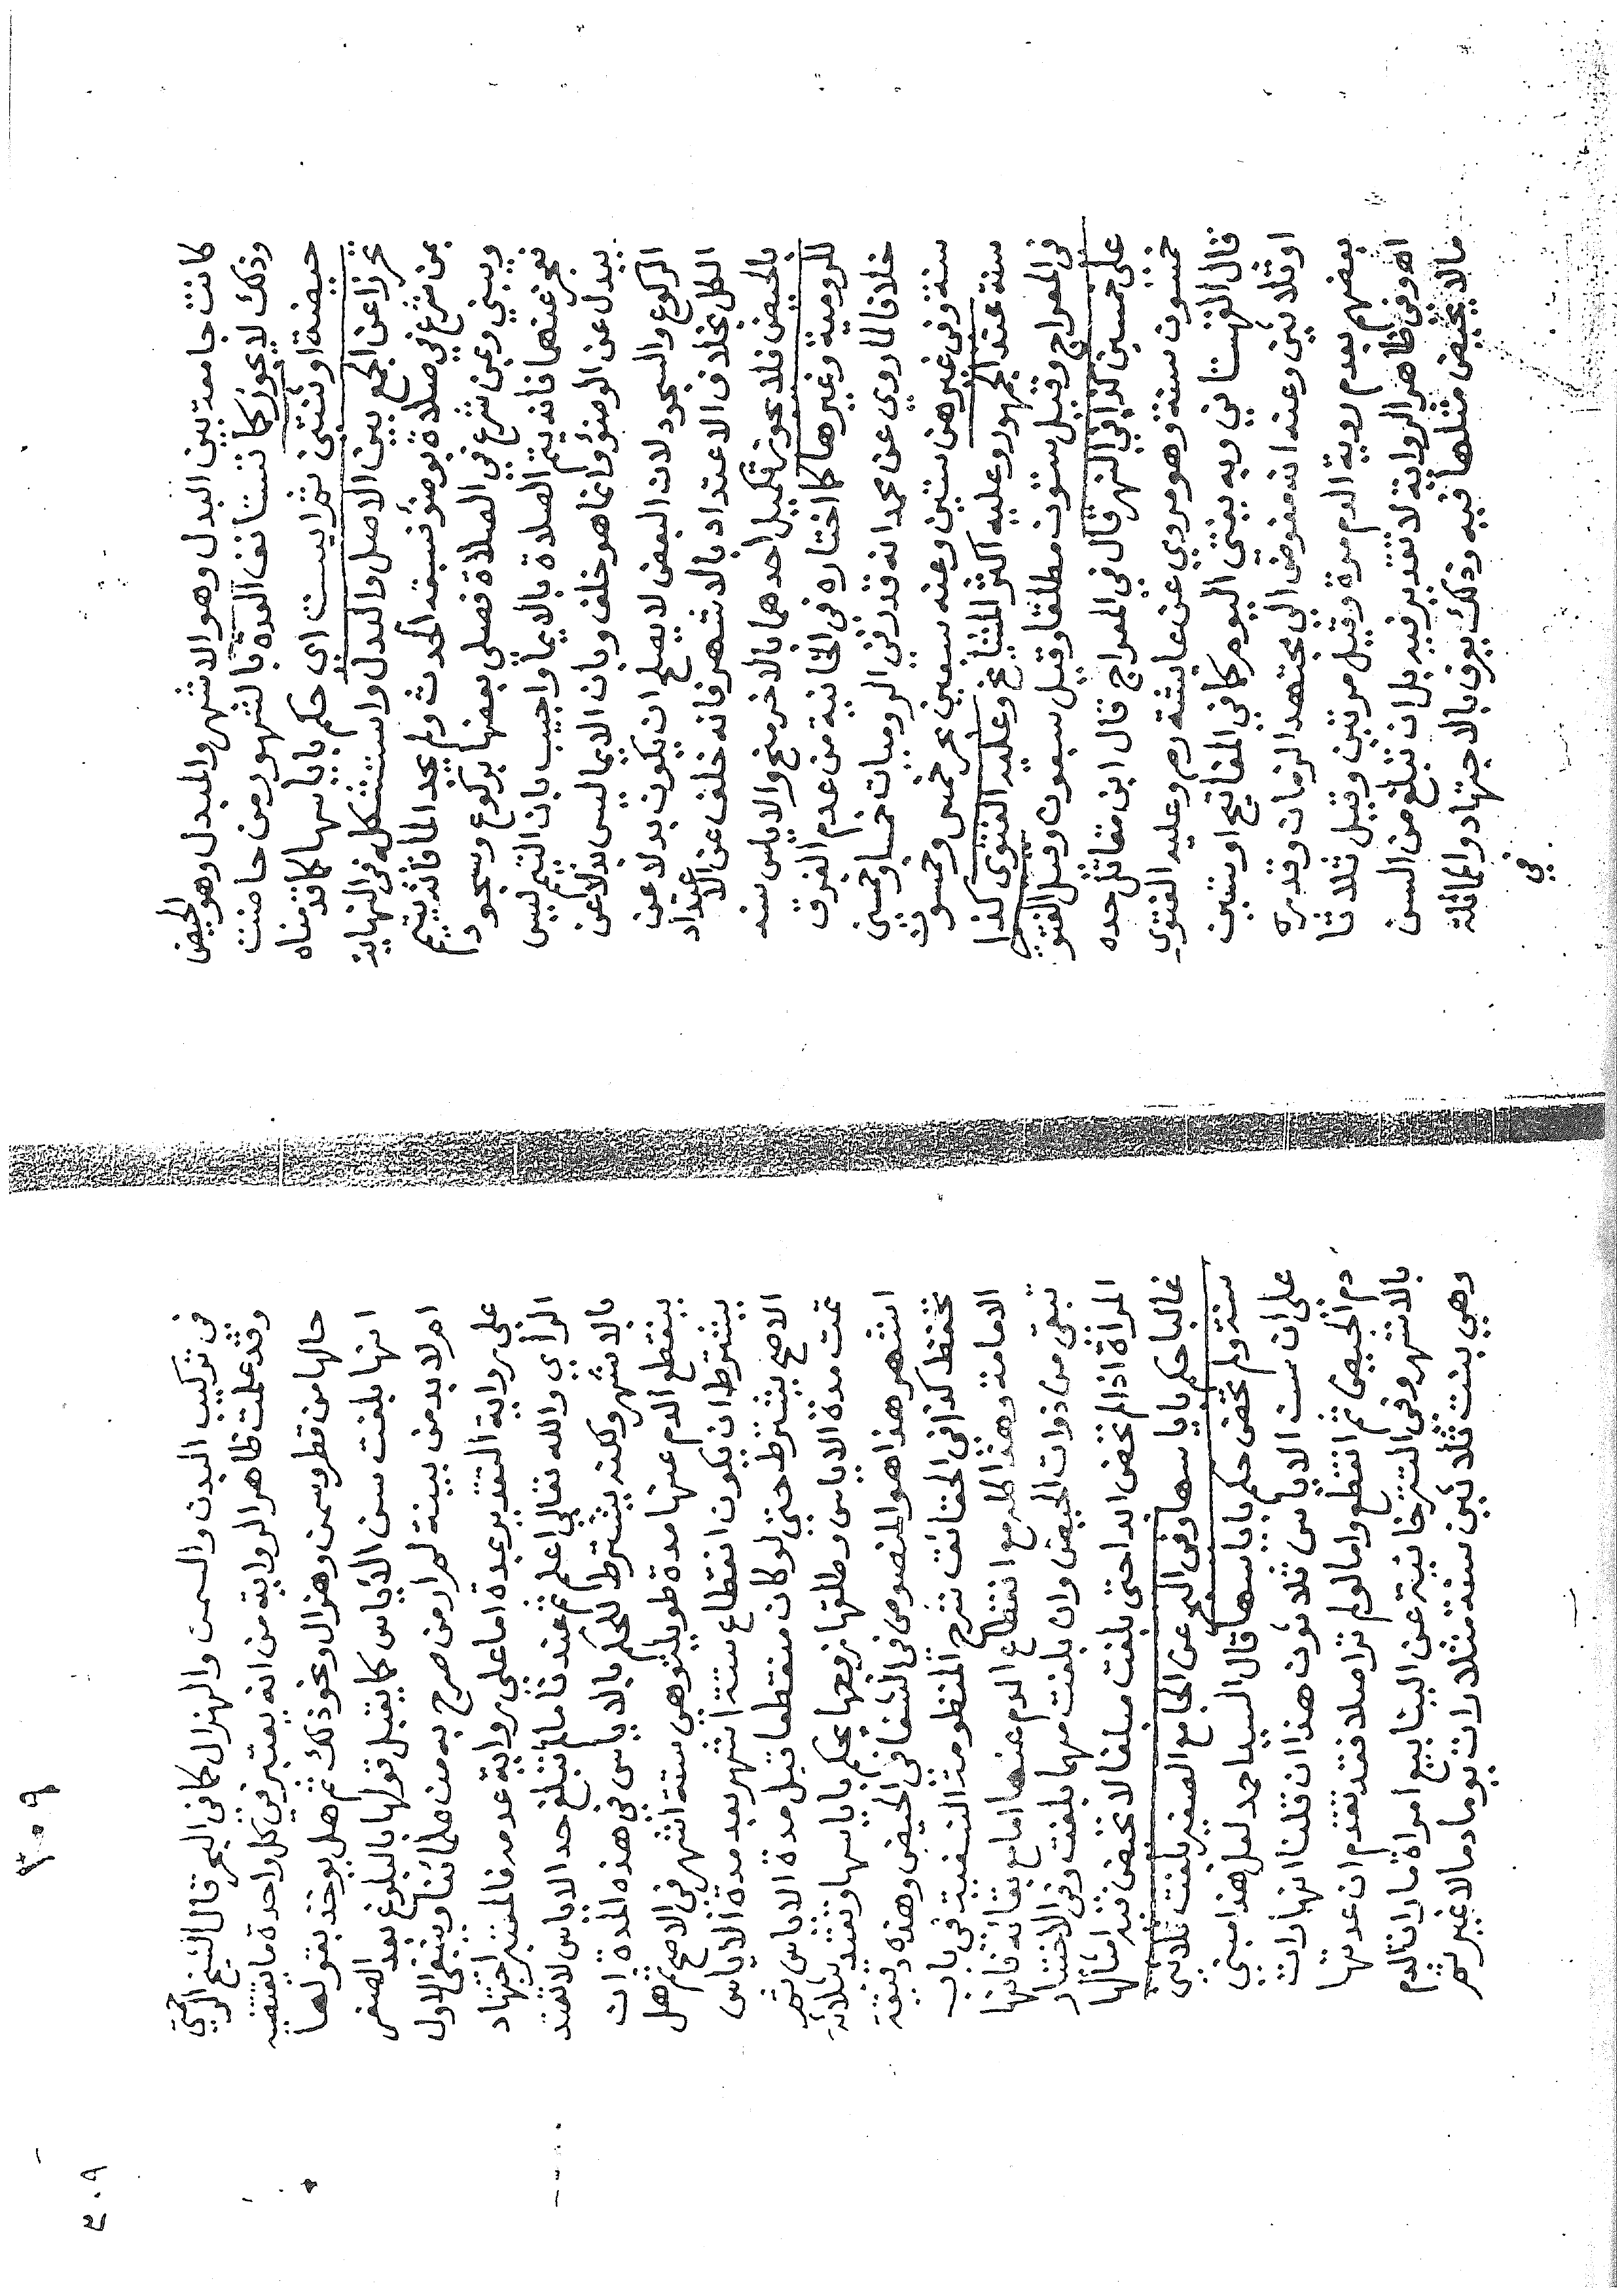 كانت جامعة بين البدل وهو الاشهر والمبدل وهو الحيض
وذلك لا يجوز كما تستانف العدة بالشهور من حاضت
حيضة او ثنتين ثم ايست اي حكم باياسها كما قدمناه
تحرزا عن الجمع بين الاصل والبدل واستشكله في النهاية
بمن شرع في صلاة بوضوء فسبقه الحدث ولم يجد الماء فانه يتيمم
ويبني وعمن شرع في الصلاة فصلى بعضها بركوع وسجود
فعجز عنهما فانه يتم الصلاة بالايما واجيب بان التيمم ليس
ببدل عن الوضوء وانما هو خلف وبان الايما ليس بدلا عن
الركوع والسجود لان البعض لا يصلح ان يكون بدلا عن
الكل بخلاف الاعتداد بالاشهر فانه خلف عن الاعتداد
بالحيض فلا يجوز تكميل احدهما بالاخر منح والاياس سنه
للرومية وغيرها كما اختاره في الخانية من عدم الفرق
خلافا لما روي عن محمد انه قدر في الروميات خمسا وخمسين
سنة وفي غيرهن ستين وعنه سبعين بحر خمس وخمسون
سنة عند الجمهور وعليه اكثر المشايخ وعليه الفتوى كذا
في المعراج وقيل ستون مطلقا وقيل سبعون وقيل الفتوى
على خمسين كذا في النهر قال في المعراج قال ابن مقاتل حده
خمسون سنة وهو مروي عن عايشة رضي وعليه الفتوى
قال القهستاني وبه يفتى اليوم كما في المفاتيح او ستين
او ثلاثين وعند انه مفوض الى مجتهد الزمان وقدره
بعضهم بعدم روية الدم مرة وقيل مرتين وقيل ثلاثا
اهـ وفي ظاهر الرواية لا تقدير فيه بل ان تبلغ من السن
ما لا يحيض مثلها فيه وذلك يعرف بالاجتهاد والمماثلة
في
في تركيب البدن والسمن والهزال كما في البحر قال الشيخ الرحمتي
وقد علمت ظاهر الرواية من انه يعتبر في كل واحدة ما يقتضيه
حالها من قطر وسمن وهزال ونحو ذلك ثم هل يوخذ بقولها
انها بلغت سن الاياس كما يقبل قولها بالبلوغ بعد الصغر
ام لا بد من بينة لم ار من صرح به من علمائنا وينبغي الاول
على رواية التقدير بمدة اما على رواية عدمه فالمعتبر اجتهاد
الراي والله تعالى اعلم ثم عندنا ما لم تبلغ حد الاياس لا تعتد
بالاشهر ولكنه يشترط للحكم بالاياس في هذه المدة ان
ينقطع الدم عنها مدة طويلة وهي ستة اشهر في الاصح ثم هل
يشترط ان يكون انقطاع ستة اشهر بعد مدة الاياس
الاصح يشترط حتى لو كان منقطعا قبل مدة الاياس ثم
تمت مدة الاياس وطلقها زوجها يحكم باياسها وتعتد بثلاثة
اشهر هذا هو المنصوص في الشفا في الحيض وهذه دقيقة
تحفظ كذا في الحقائق شرح المنظومة النسفية في باب
الامامة وهذا كله مع انقطاع الدم عنها اما مع بقائه فانها
تبقى من ذوات الحيض وان بلغت مهما بلغت وفي الاختيار
المراة اذا لم تحض ابدا حتى بلغت مبلغا لا تحيض فيه امثالها
غالبا حكم باياسها وفي البحر عن الجامع الصغير بلغت ثلاثين
سنة ولم تحض حكم باياسها قال السيد احمد لعل هذا مبني
على ان سن الاياس ثلاثون هذا ان قلنا انها رات
دم الحيض ثم انقطع واما لو لم تر اصلا فقد تقدم ان عدتها
بالاشهر وفي التترخانية عن الينابيع امراة ما رات الدم
وهي بنت ثلاثين سنة مثلا رات يوما دما لا غير ثم
٢٠٩
٢٠٩